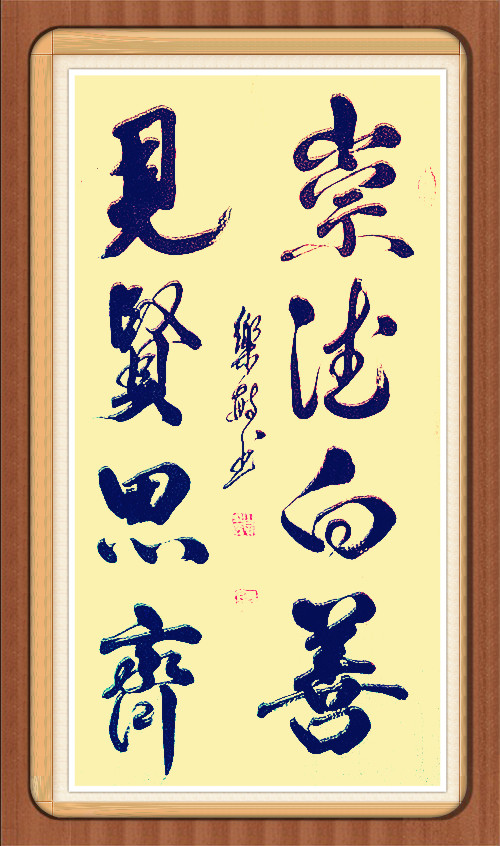 崇德向善
見賢思齊
樂书